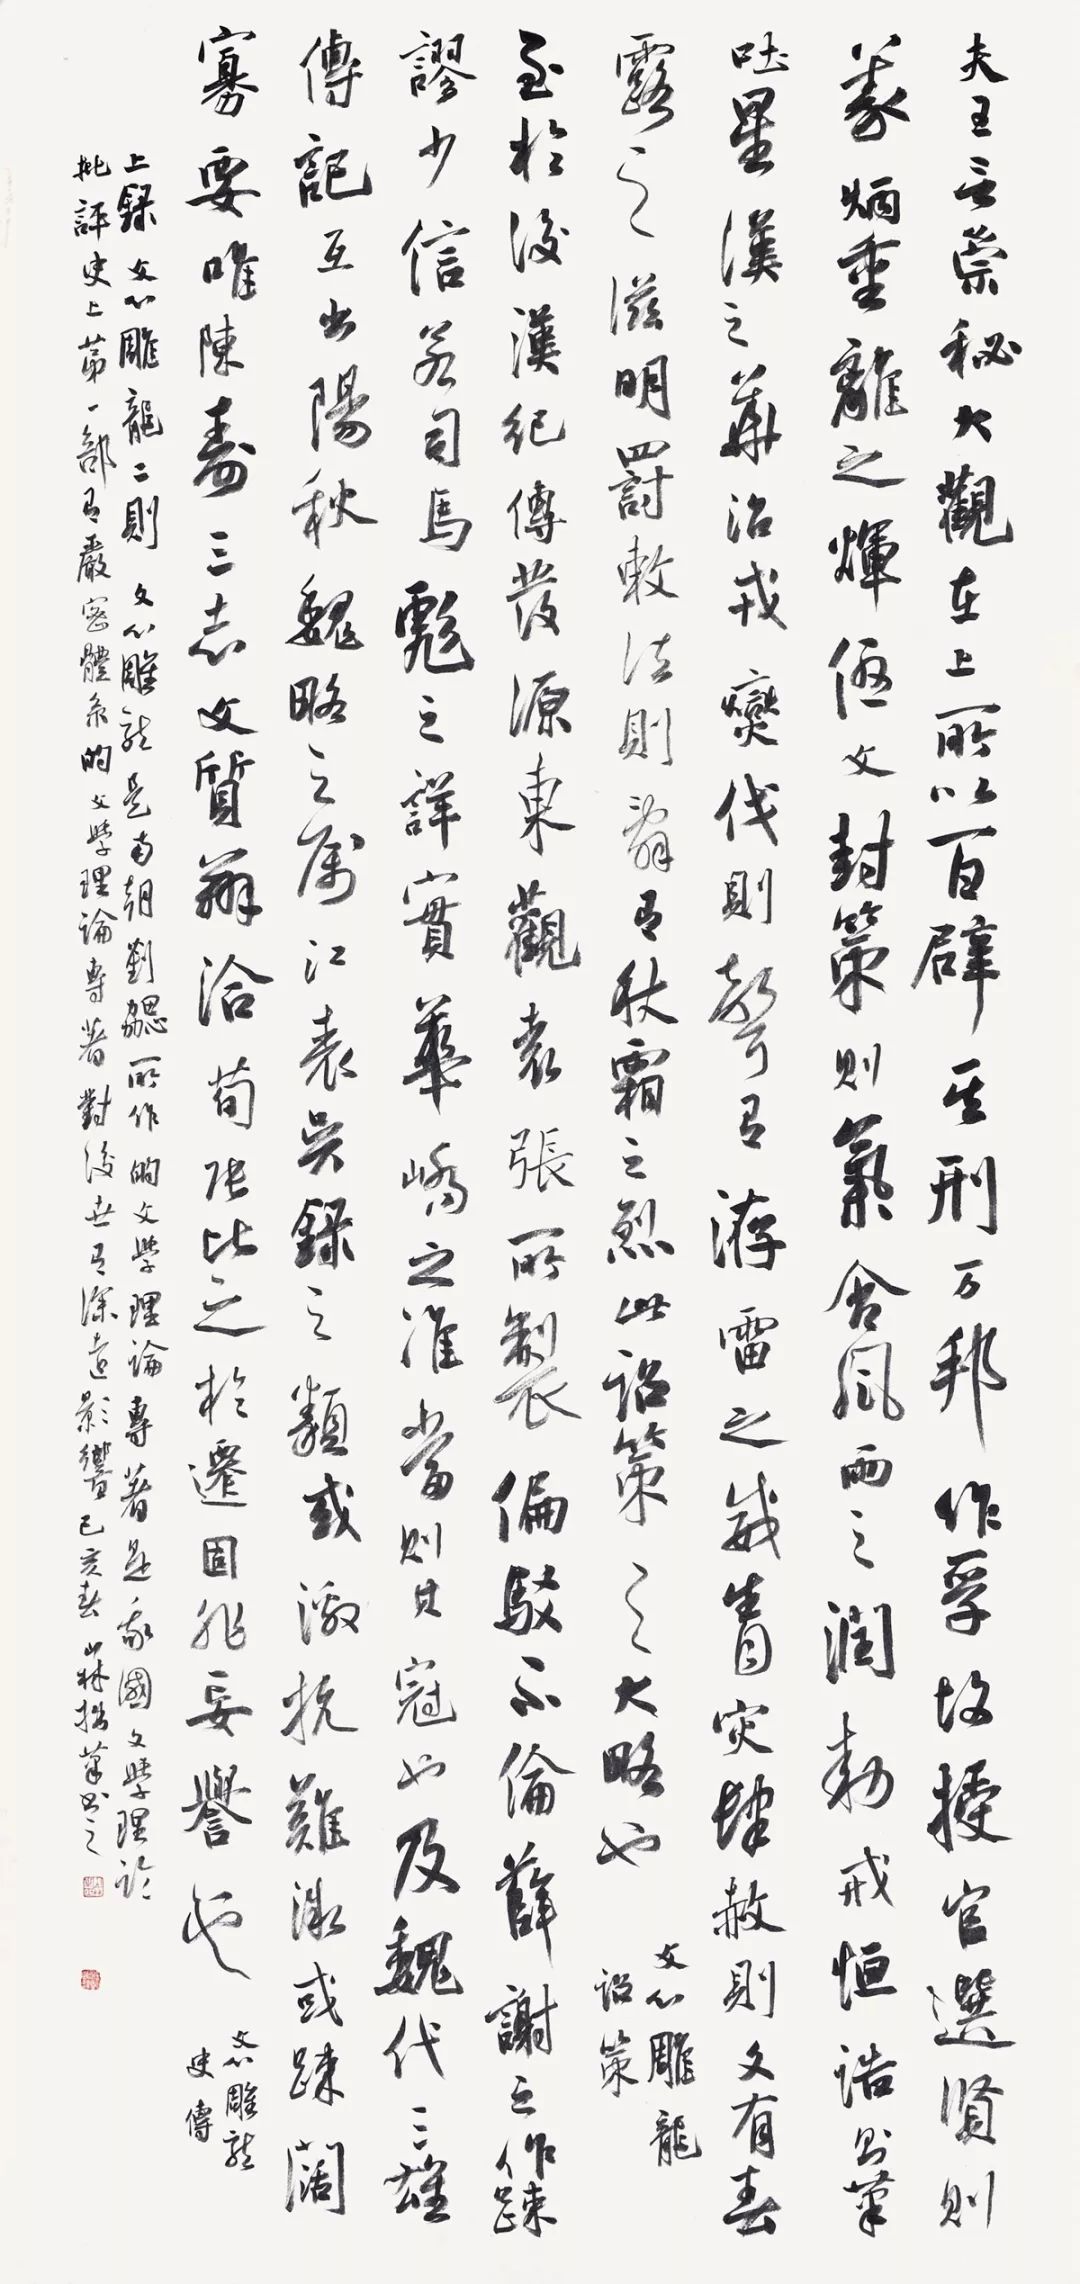 夫王言崇秘大觀在上所以百辟其刑万邦作孚故授官選賢則
義炳重離之輝優文封策則氣含風雨之潤勅戒恒誥則筆
吐星漢之華治戎燮伐則聲有洊雷之威眚災肆赦則文有春
露之滋明罰敕法則辭有秋霜之烈此詔策之大略也
文心雕龍
詔策
至於後漢紀傳發源東觀袁張所製偏駁不倫薛謝之作疎
謬少信若司馬彪之詳實華嶠之准當則其冠也及魏代三雄
傳記互出陽秋魏略之屬江表吳錄之類或激抗難徵或疎闊
寡要唯陳壽三志文質辨洽荀張比之於遷固非妄譽也
文心雕龍
史傳
上錄文心雕龍二則文心雕龍是南朝劉勰所作的文學理論專著是我國文學理論
批評史上第一部有嚴密體系的文學理論專著對後世有深遠影響己亥春林拙筆書之